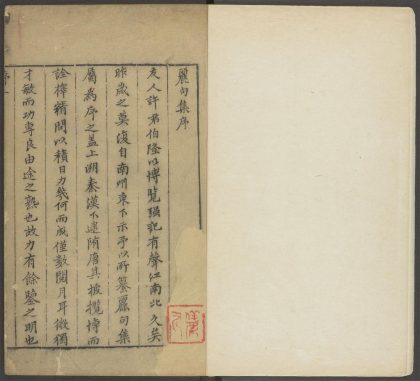 麗句集序
友人許弟伯隆以博覽强記有聲江南北久矣
昨歲之莫復自南州東下示予以所篹麗句集
屬爲序之盖上溯秦漢下逮隋唐其披攬博而
詮擇精問以積日力幾何而成僅數閱月耳微獨
才敏而功專良由途之熟也故力有餘鑒之明也